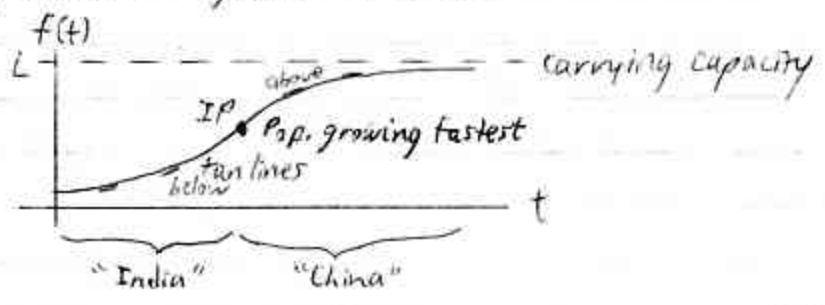 f(t)
L
carrying capacity
above
IP
Pop. growing fastest
tan lines
below
t
"India" "China"